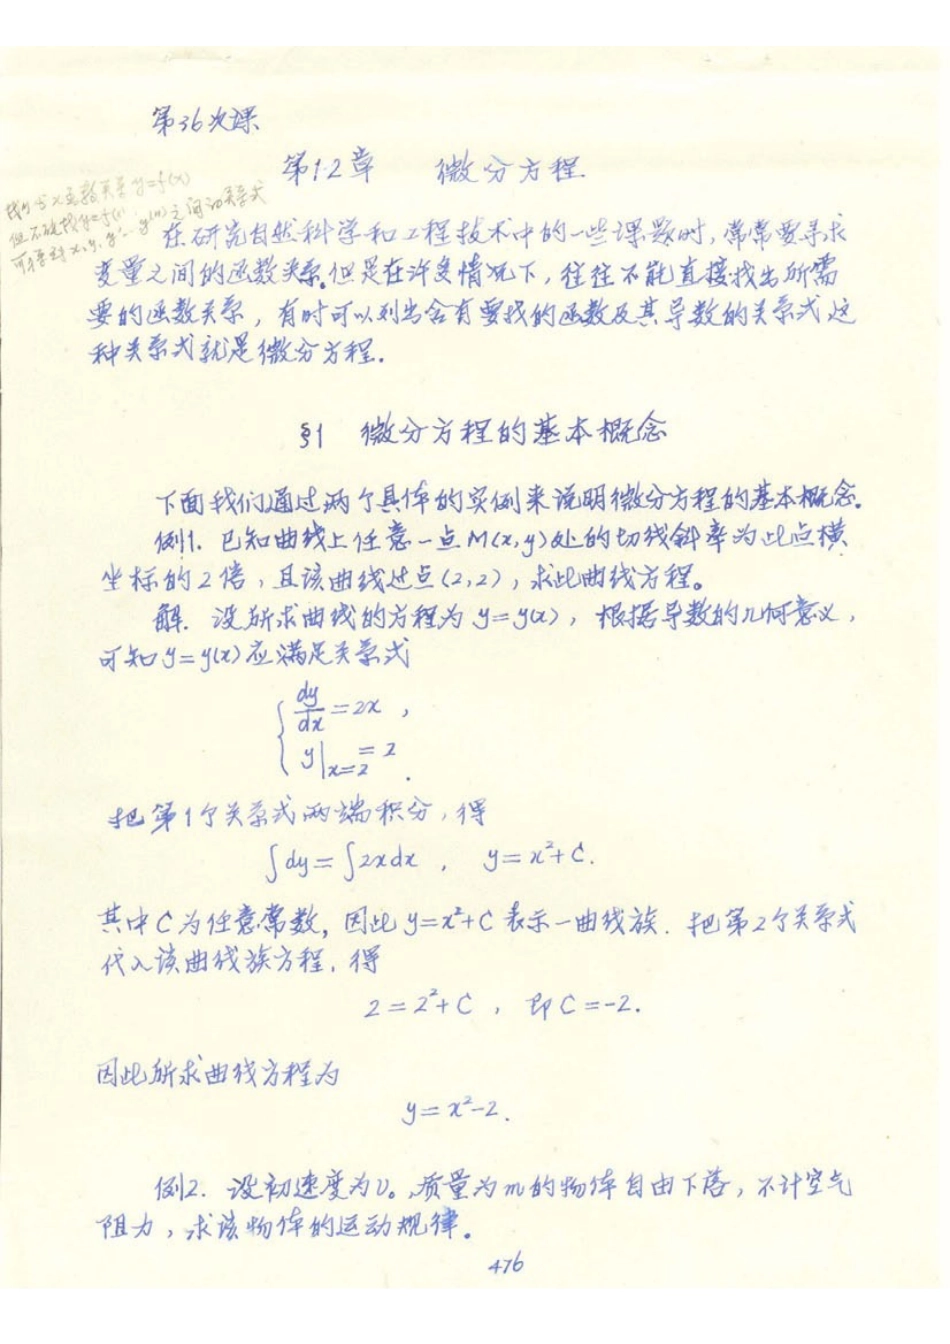 第36次课
第12章 微分方程
找y与x函数关系y=f(x)
但不能找y=f(x)
可得到x,y,y′…y⁽ⁿ⁾之间的关系式
在研究自然科学和工程技术中的一些课题时,常常要寻求
变量之间的函数关系.但是在许多情况下,往往不能直接找出所需
要的函数关系,有时可以列出含有要找的函数及其导数的关系式这
种关系式就是微分方程.
§1 微分方程的基本概念
下面我们通过两个具体的实例来说明微分方程的基本概念.
例1. 已知曲线上任意一点M(x,y)处的切线斜率为此点横
坐标的2倍,且该曲线过点(2,2),求此曲线方程。
解. 设所求曲线的方程为y=y(x),根据导数的几何意义,
可知y=y(x)应满足关系式
dy/dx=2x,
y|x=2 =2.
把第1个关系式两端积分,得
∫dy=∫2xdx, y=x²+C.
其中C为任意常数,因此y=x²+C表示一曲线族.把第2个关系式
代入该曲线族方程,得
2=2²+C, 即C=-2.
因此所求曲线方程为
y=x²-2.
例2. 设初速度为v₀,质量为m的物体自由下落,不计空气
阻力,求该物体的运动规律。
476